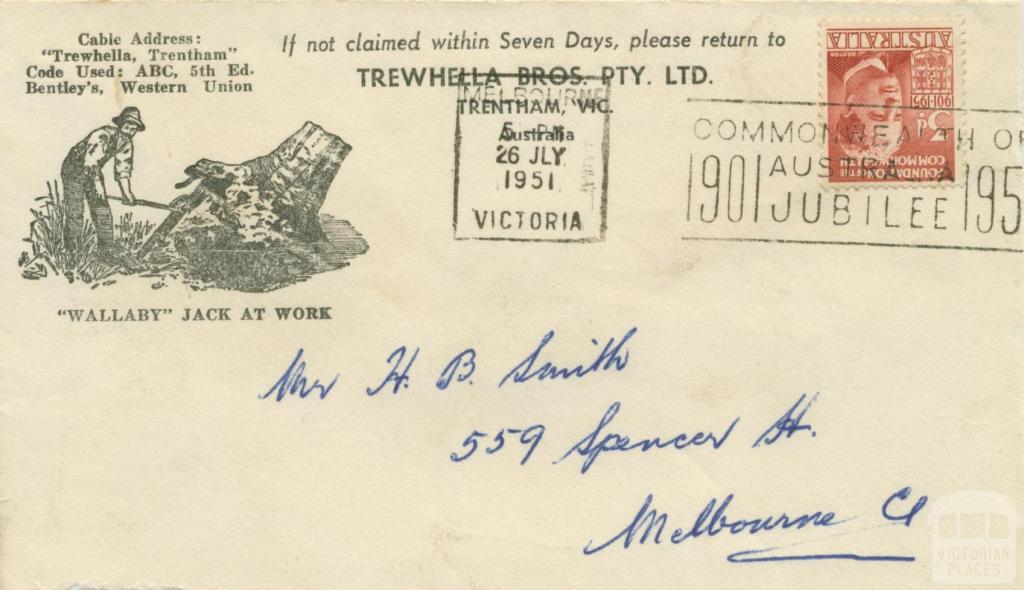 Cable Address:
"Trewhella, Trentham"
Code Used: ABC, 5th Ed.
Bentley's, Western Union
"WALLABY" JACK AT WORK
If not claimed within Seven Days, please return to
TREWHELLA BROS. PTY. LTD.
TRENTHAM, VIC.
Australia
MELBOURNE
5 - PM
26 JLY
1951
VICTORIA
COMMONWEALTH OF
AUSTRALIA
1901 JUBILEE 195
AUSTRALIA
1901-1951
3½d
BARTON
FOUNDATION OF THE
COMMONWEALTH
Mr H. B. Smith
559 Spencer St.
Melbourne C1
VICTORIAN
PLACES